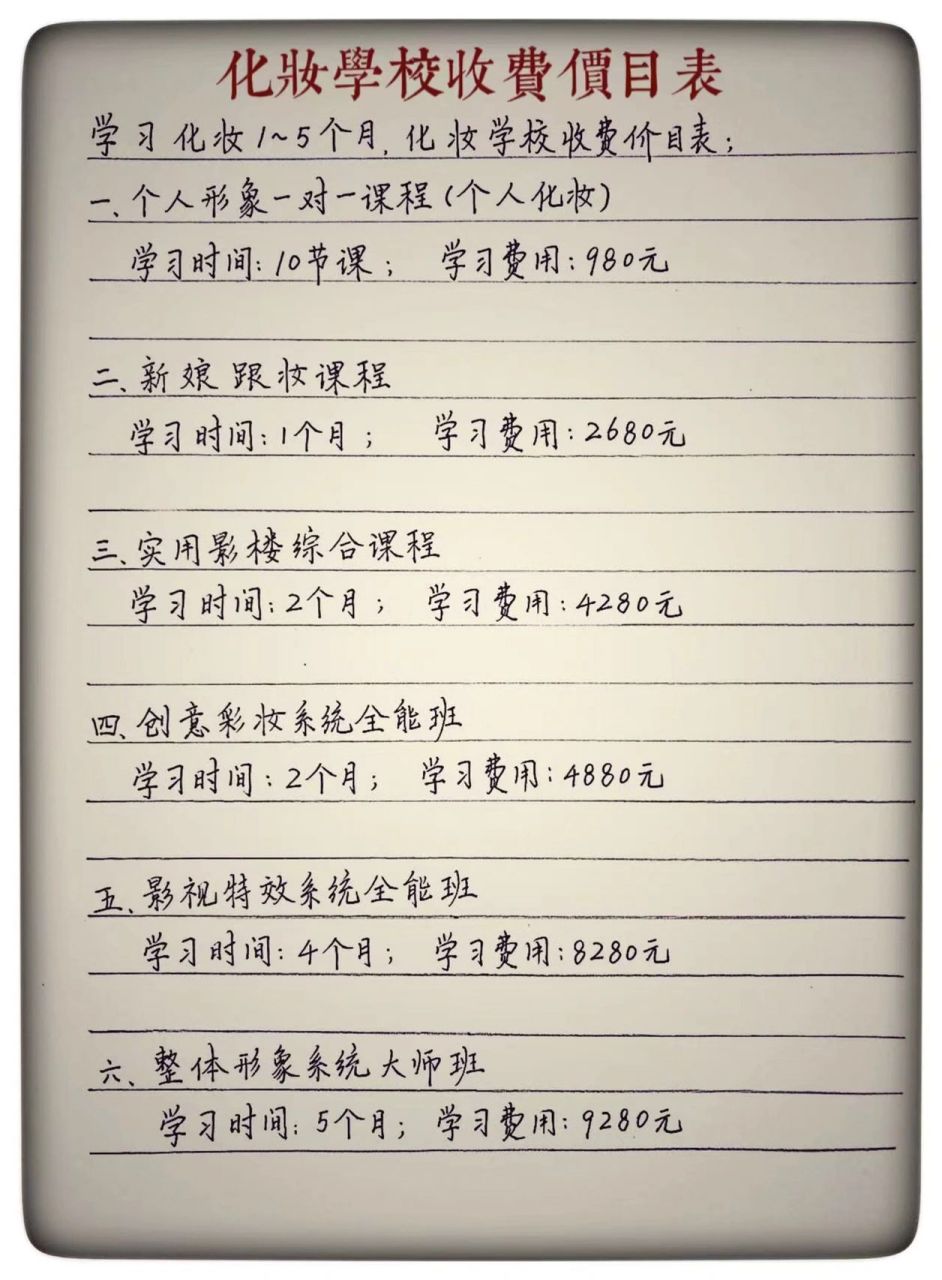 化妝學校收費價目表
学习化妆1~5个月,化妆学校收费价目表;
一、个人形象一对一课程(个人化妆)
学习时间:10节课; 学习费用:980元
二、新娘跟妆课程
学习时间:1个月; 学习费用:2680元
三、实用影楼综合课程
学习时间:2个月; 学习费用:4280元
四、创意彩妆系统全能班
学习时间:2个月; 学习费用:4880元
五、影视特效系统全能班
学习时间:4个月; 学习费用:8280元
六、整体形象系统大师班
学习时间:5个月; 学习费用:9280元